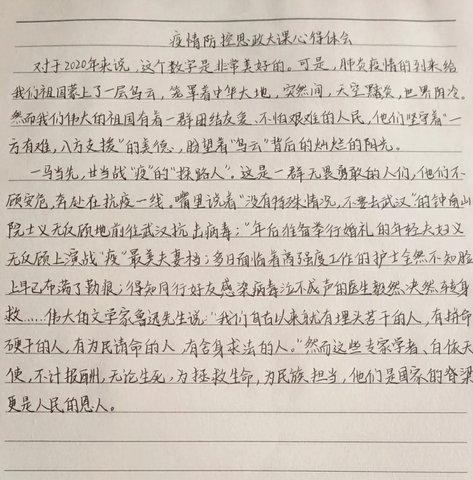 疫情防控思政大课心得体会
对于2020年来说，这个数字是非常美好的。可是，肺炎疫情的到来给
我们祖国蒙上了一层乌云，笼罩着中华大地，突然间，天空黯炎，世界阴冷。
然而我们伟大的祖国有着一群团结友爱、不怕艰难的人民，他们坚守着"一
方有难，八方支援"的美德，盼望着"乌云"背后的灿烂的阳光。
一马当先，甘当战"疫"的"探路人"。这是一群无畏勇敢的人们，他们不
顾安危，奔赴在抗疫一线。嘴里说着"没有特殊情况，不要去武汉"的钟南山
院士义无反顾地前往武汉抗击病毒；"年后准备举行婚礼的年轻夫妇义
无反顾上演战"疫"最美夫妻档；多日面临着高强度工作的护士全然不知脸
上早已布满了勒痕；得知同行好友感染病毒泣不成声的医生毅然决然转身
救……伟大的文学家鲁迅先生说："我们自古以来就有埋头苦干的人，有拼命
硬干的人，有为民请命的人，有舍身求法的人。"然而这些专家学者、白依天
使，不计报酬，无论生死，为拯救生命，为民族担当，他们是国家的脊梁
更是人民的恩人。